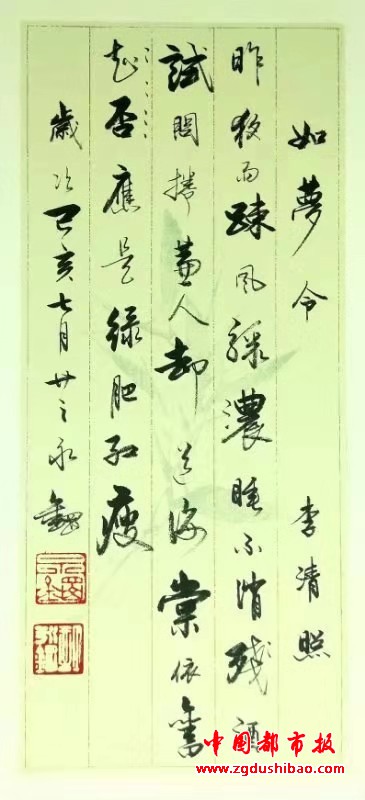 如夢令 李清照
昨夜雨踈風驟濃睡不消殘酒
試問捲簾人却道海棠依舊
知否應是綠肥紅瘦
歲次己亥七月廿之永
中国都市报
www.zgdushibao.com